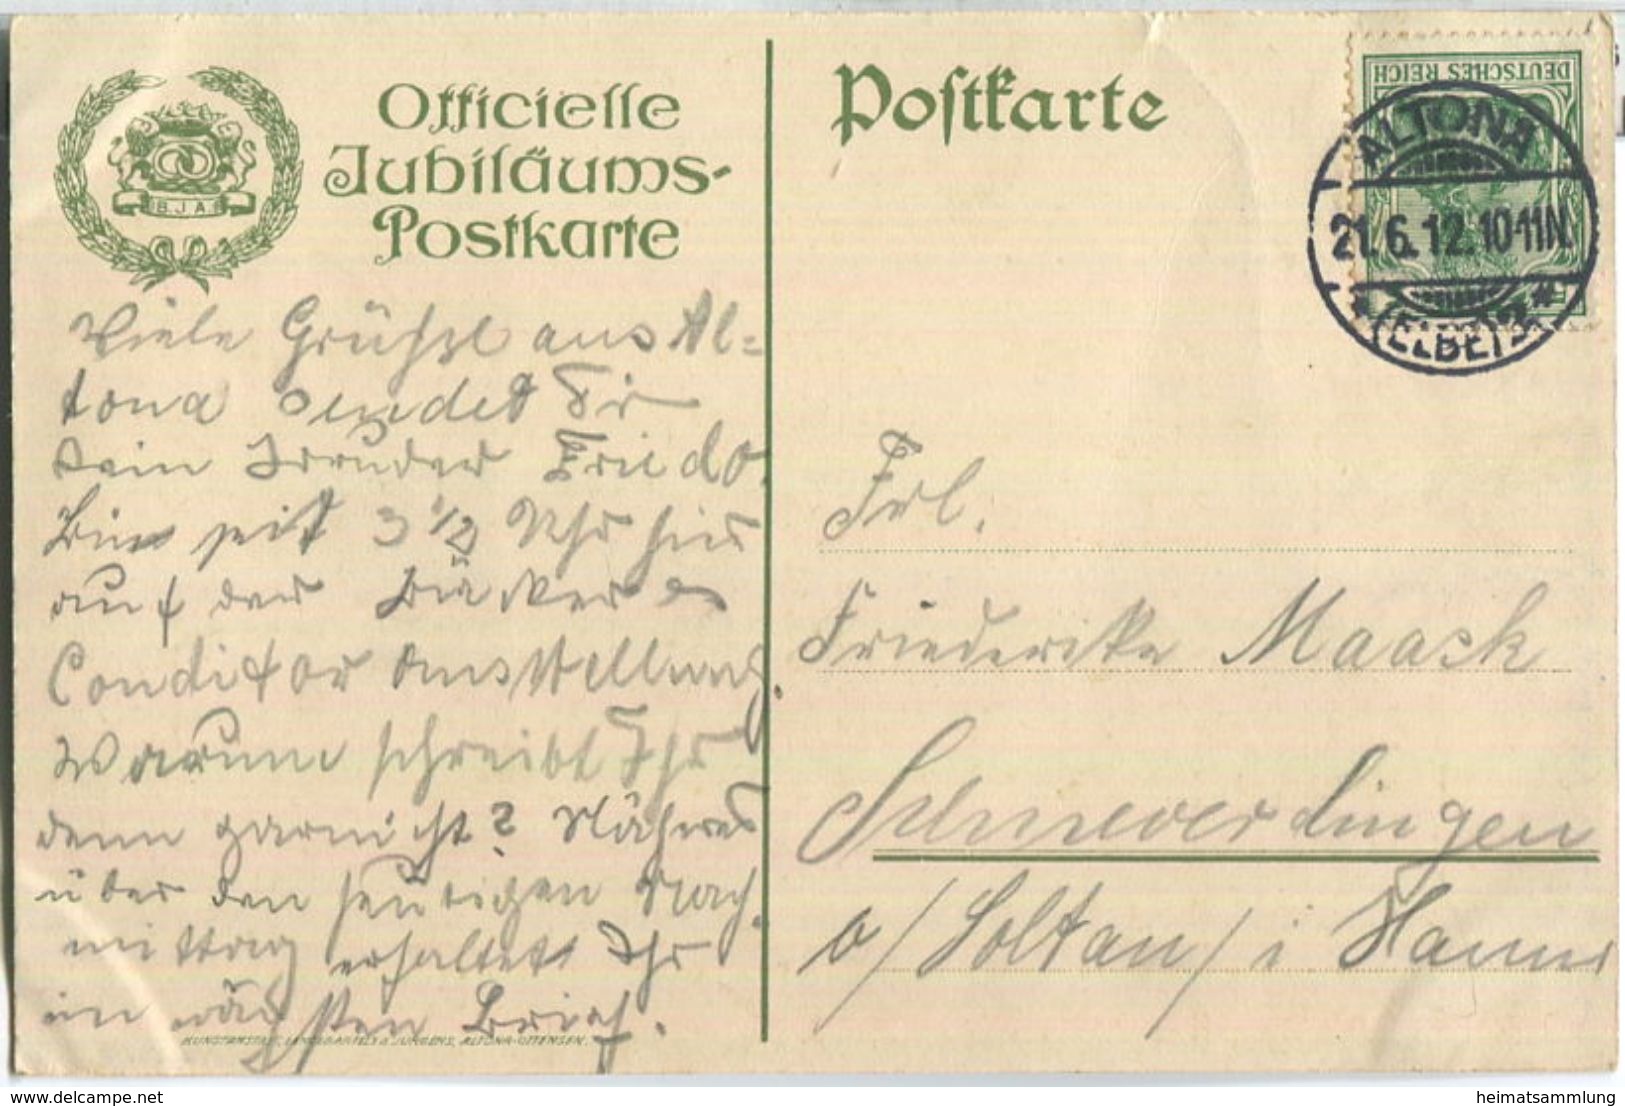 Officielle
Jubiläums-
Postkarte
B J A
Viele Grüße aus Al=
tona sendet Dir
Dein Bruder Friedo.
Bin seit 3 1/2 Uhr hier
auf der Bäcker
Conditor Ausstellung.
Warum schreibt Ihr
denn garnicht? Näheres
über den heutigen Nach
mittag erhaltet Ihr
im nächsten Brief.
ALTONA-OTTENSEN.
Postkarte
DEUTSCHES REICH
ALTONA
21.6.12.10-11N.
(ELBE)
Frl.
Friederike Maack
Schneverdingen
b/Soltau/i Hann
delcampe.net
heimatsammlung